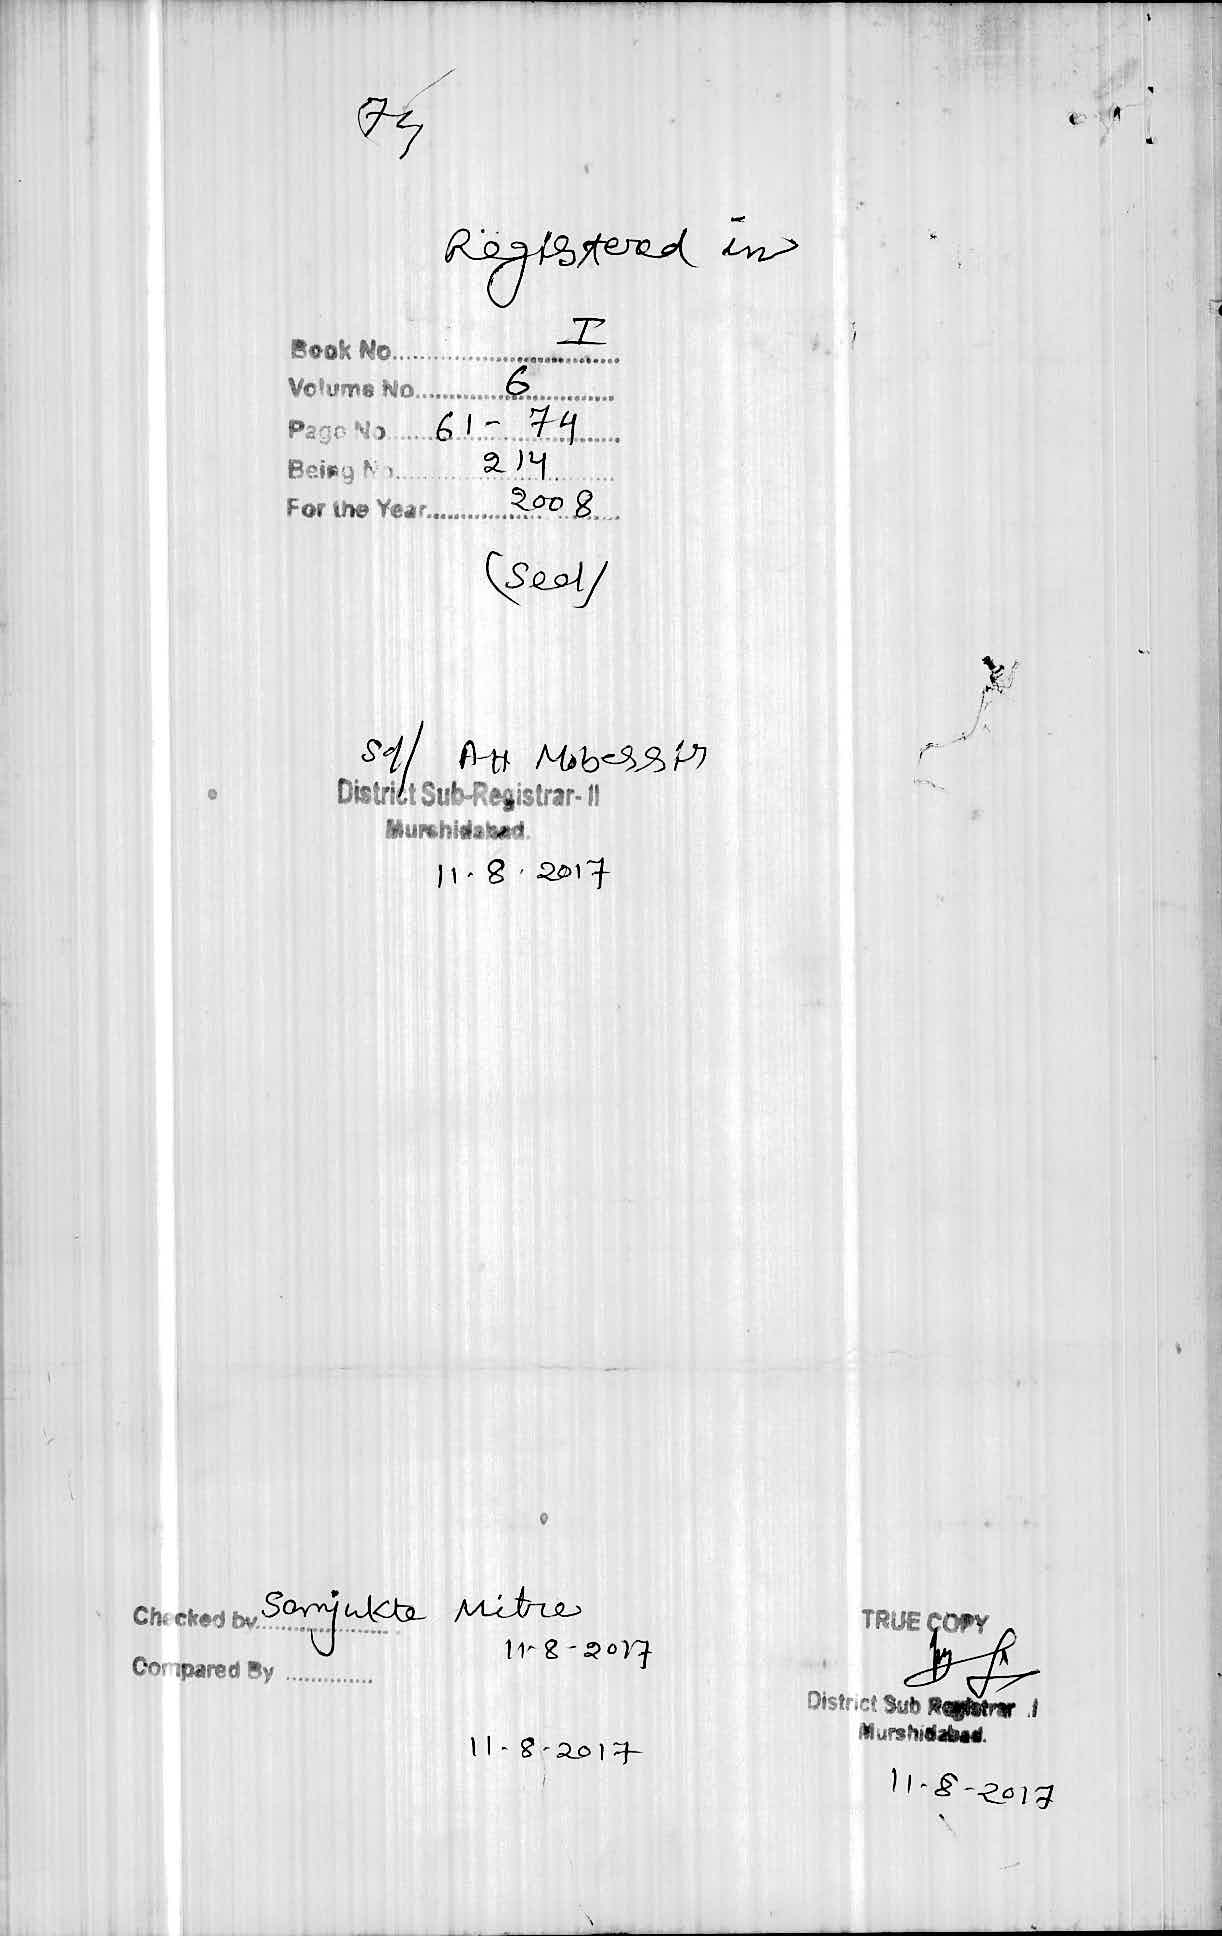 74
Registered in
Book No. I
Volume No. 6
Page No. 61 - 74
Being No. 214
For the Year 2008
(Seal)
Sd/ AH Mobessir
District Sub-Registrar-II
Murshidabad.
11.8.2017
Checked by Samjukta Mitra
11-8-2017
Compared By
11-8-2017
TRUE COPY
District Sub Registrar I
Murshidabad.
11-8-2017